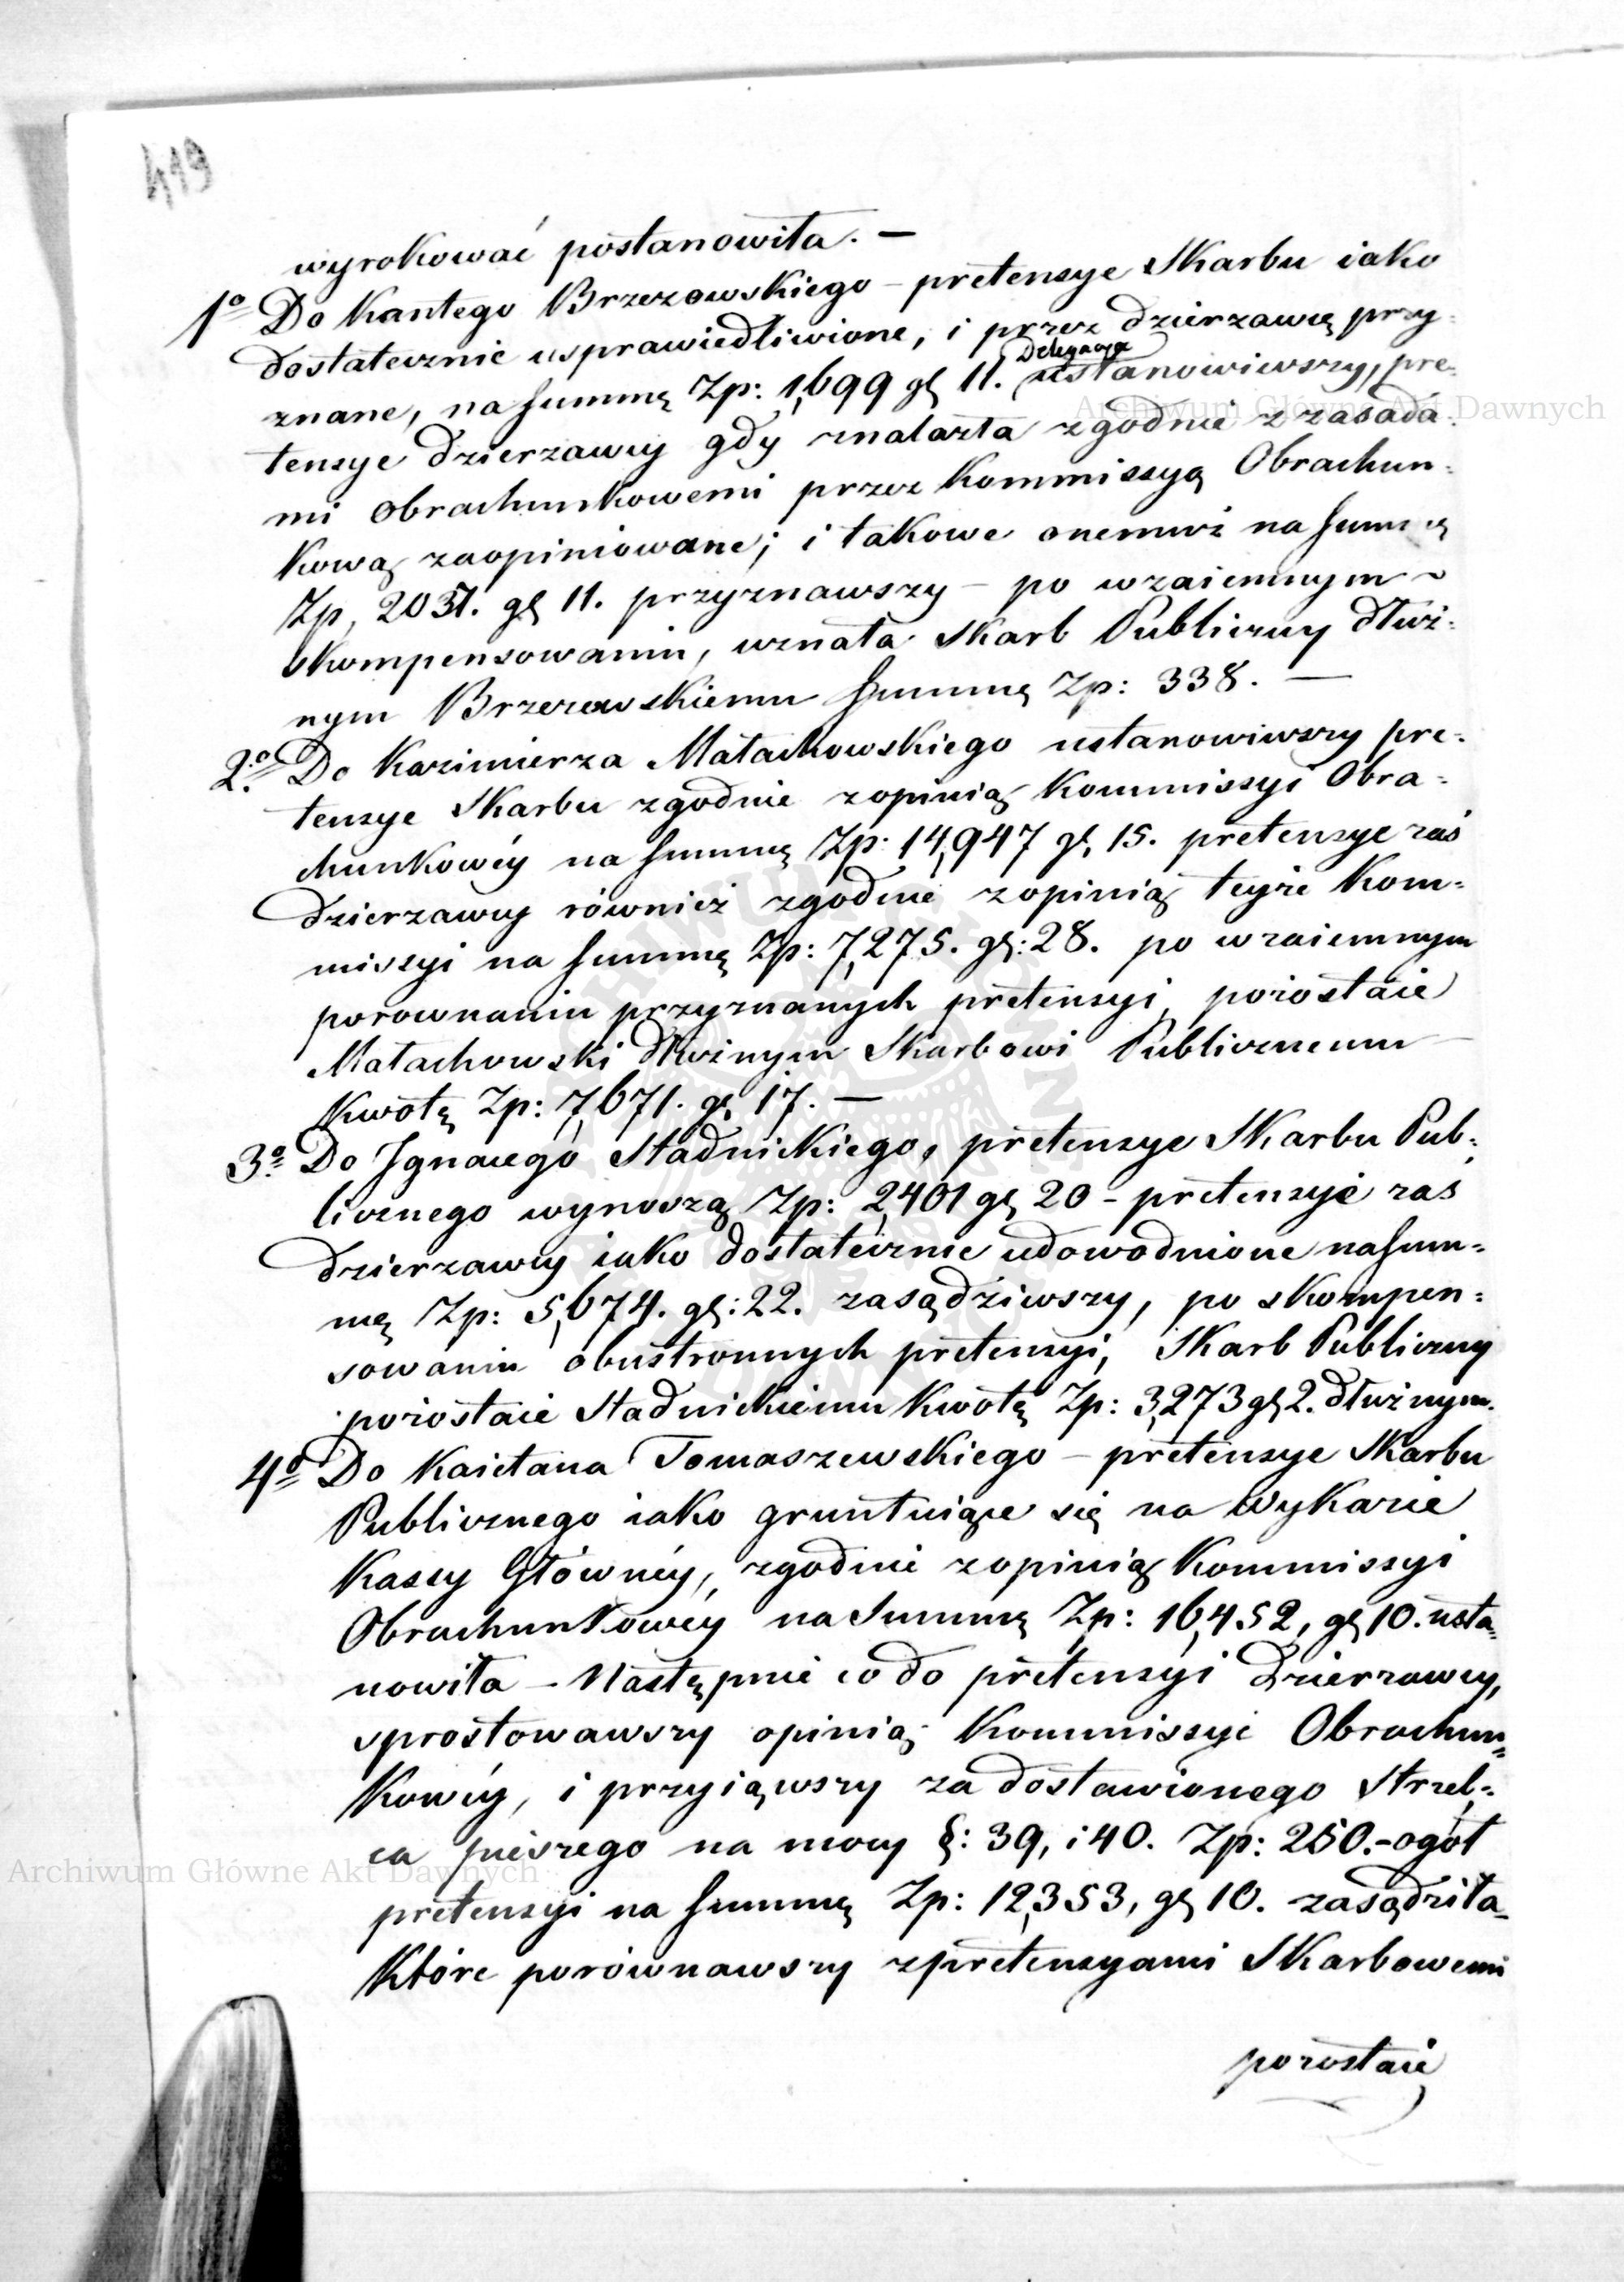 419
wyrokować postanowiła. —
1o Do Kantego Brzezowskiego – pretensye Skarbu iako
dostatecznie usprawiedliwione, i przez dzierzawcę przy=
znane, na summę Zp: 1,699 gl 11. Delegacya ustanowiwszy, pre=
tensye dzierzawcy gdy znalazła zgodnie z zasada=
mi obrachunkowemi przez Kommissyą Obrachun=
kową zaopiniowane; i takowe onemuż na summę
Zp, 2037. gl 11. przyznawszy – po wzaiemnym
skompensowaniu, uznała Skarb Publiczny dłuż=
nym Brzezowskiemu summę Zp: 338. —
2o. Do Kazimierza Małachowskiego ustanowiwszy pre=
tensye Skarbu zgodnie z opinią Kommissyi Obra=
chunkowéy na summę Zp: 14,947 gl, 15. pretensye zaś
dzierzawcy również zgodnie z opinią teyże Kom=
missyi na summę Zp: 7,275. gl: 28. po wzaiemnym
porownaniu przyznanych pretensyi, pozostaie
Małachowski dłużnym Skarbowi Publicznemu
Kwotę Zp: 7,671. gl, 17. —
3o Do Ignacego Stadnickiego, pretensye Skarbu Pub=
licznego wynoszą Zp: 2,401 gl 20 – pretensye zaś
dzierzawcy iako dostatecznie udowodnione na sum=
mę Zp: 5,674. gl: 22. zasądziwszy, po skompen=
sowaniu obustronnych pretensyi, Skarb Publiczny
pozostaie Stadnickiemu Kwotę Zp: 3,273 gl 2. dłużnym.
4o Do Kaietana Tomaszewskiego – pretensye Skarbu
Publicznego iako gruntuiące się na Wykazie
Kassy Głównéy, zgodnie z opinią Kommissyi
Obrachunkowéy na Summę Zp: 16,452, gl 10. usta=
nowiła – Następnie co do pretensyi dzierzawcy,
sprostowawszy opinią Kommissyi Obrachun=
kowéy, i przyiąwszy za dostawionego Strzel=
ca pieszego na mocy §: 39, i 40. Zp: 250.– ogół
pretensyi na summę Zp: 12,353, gl 10. zasądziła –
Które porównawszy z pretensyami Skarbowemi
pozostaie
Archiwum Główne Akt Dawnych
Archiwum Główne Akt Dawnych